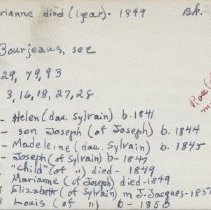 rianne died (1 year) - 1849 Bk.
Bourjeaus, see
29, 79, 93
3, 16, 18, 27, 28
- Helen (dau. Sylvain) b. 1841
- son Joseph (of Joseph) b. 1844
- Madeleine (dau. Sylvain) b. 1845
- Joseph (of Sylvain) b - 1844
- "Child" (of ") died - 1849
- Marianne (of Joseph) died - 1849
Elizabeth (of Sylvain) m J. Jacques - 1857
Louis (of ") b - 1850